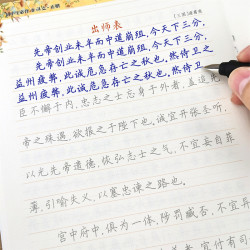 出师表
先帝创业未半而中道崩殂,今天下三分,
先帝创业未半而中道崩殂,今天下三分,
益州疲弊,此诚危急存亡之秋也,然侍卫之
益州疲弊,此诚危急存亡之秋也,然侍卫
臣不懈于内,忠志之士忘身于外者,盖追先
帝之殊遇,欲报之于陛下也,诚宜开张圣听,
以光先帝遗德,恢弘志士之气,不宜妄自菲
薄,引喻失义,以塞忠谏之路也。
宫中府中,俱为一体,陟罚臧否,不宜异